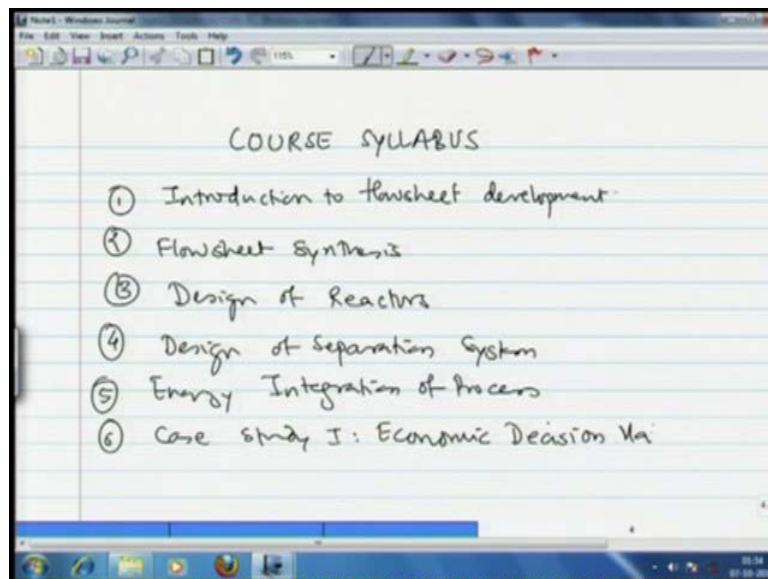 Note1 - Windows Journal
File Edit View Insert Actions Tools Help
115%
COURSE SYLLABUS
1 Introduction to flowsheet development
2 Flowsheet Synthesis
3 Design of Reactors
4 Design of Separation System
5 Energy Integration of Process
6 Case Study I: Economic Decision Ma
4